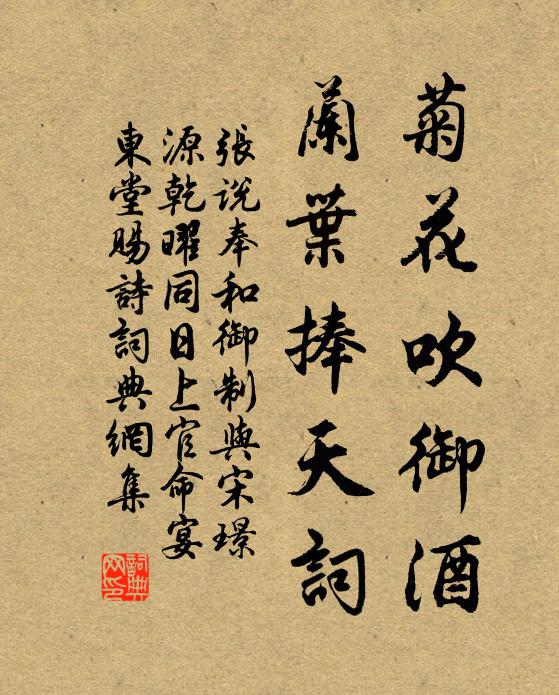 菊花吹御酒
蘭葉捧天詞
張说奉和御制與宋璟
源乾曜同日上官命宴
東堂賜詩詞典網集
詞典网印